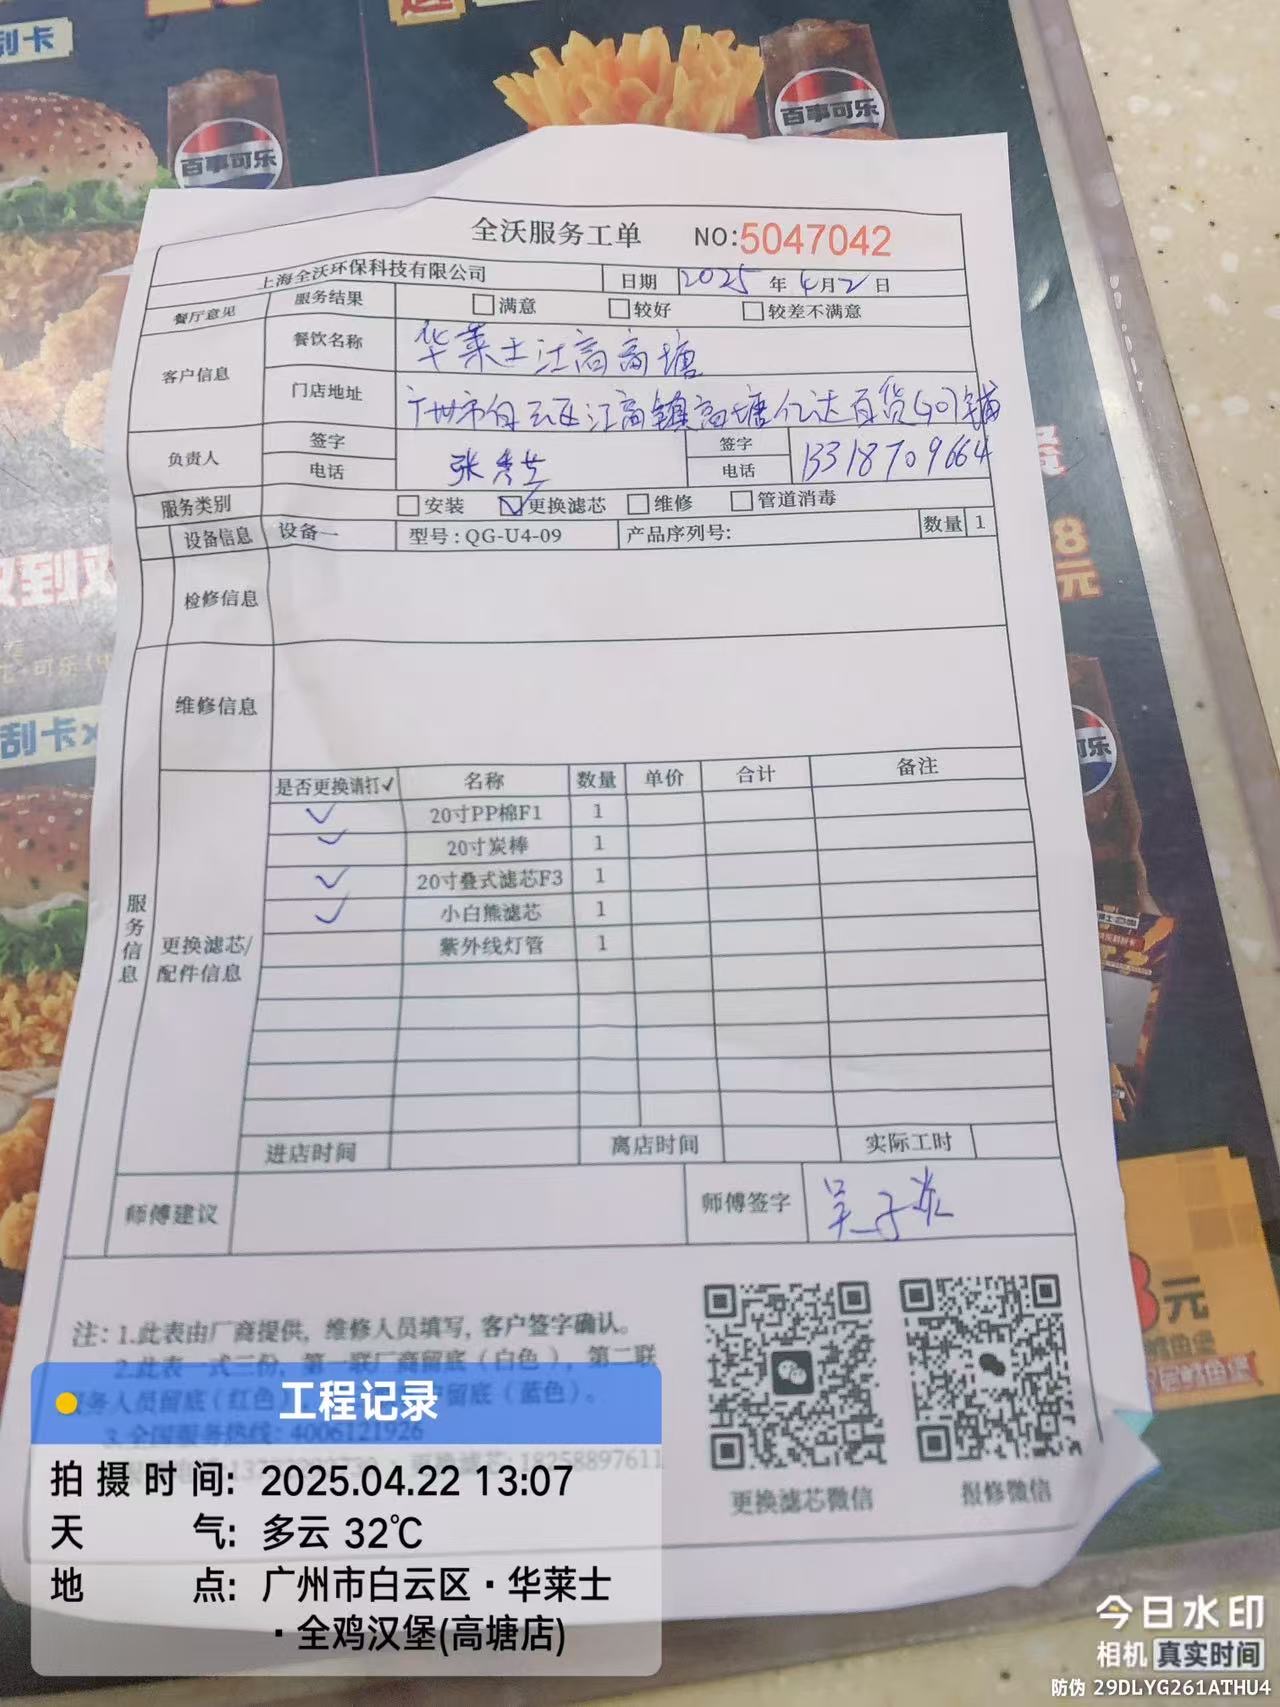 刮卡
百事可乐
百事可乐
全沃服务工单 NO:5047042
上海全沃环保科技有限公司 日期 2025 年 4月2 日
餐厅意见 服务结果 □满意 □较好 □较差不满意
客户信息 餐饮名称 华莱士江高高塘
门店地址 广州市白云区江高镇高塘亿达百货
负责人 签字 张秀兰 签字
电话 电话 13318709664
服务类别 □安装 ☑更换滤芯 □维修 □管道消毒
设备信息 设备一 型号:QG-U4-09 产品序列号: 数量 1
检修信息
维修信息
服务信息
更换滤芯/
配件信息
是否更换请打✓ 名称 数量 单价 合计 备注
✓ 20寸PP棉F1 1
✓ 20寸炭棒 1
✓ 20寸叠式滤芯F3 1
✓ 小白熊滤芯 1
紫外线灯管 1
进店时间 离店时间 实际工时
师傅建议 师傅签字
注: 1.此表由厂商提供, 维修人员填写, 客户签字确认。
2.此表一式三份, 第一联厂商留底(白色), 第二联
务人员留底(红色) 留底(蓝色)。
3.全国服务热线: 4006121926
更换滤芯:18258897611
更换滤芯微信
报修微信
刮卡x
可乐
8
元
元
工程记录
拍摄时间: 2025.04.22 13:07
天 气: 多云 32℃
地 点: 广州市白云区·华莱士
·全鸡汉堡(高塘店)
今日水印
相机 真实时间
防伪 29DLYG261ATHU4